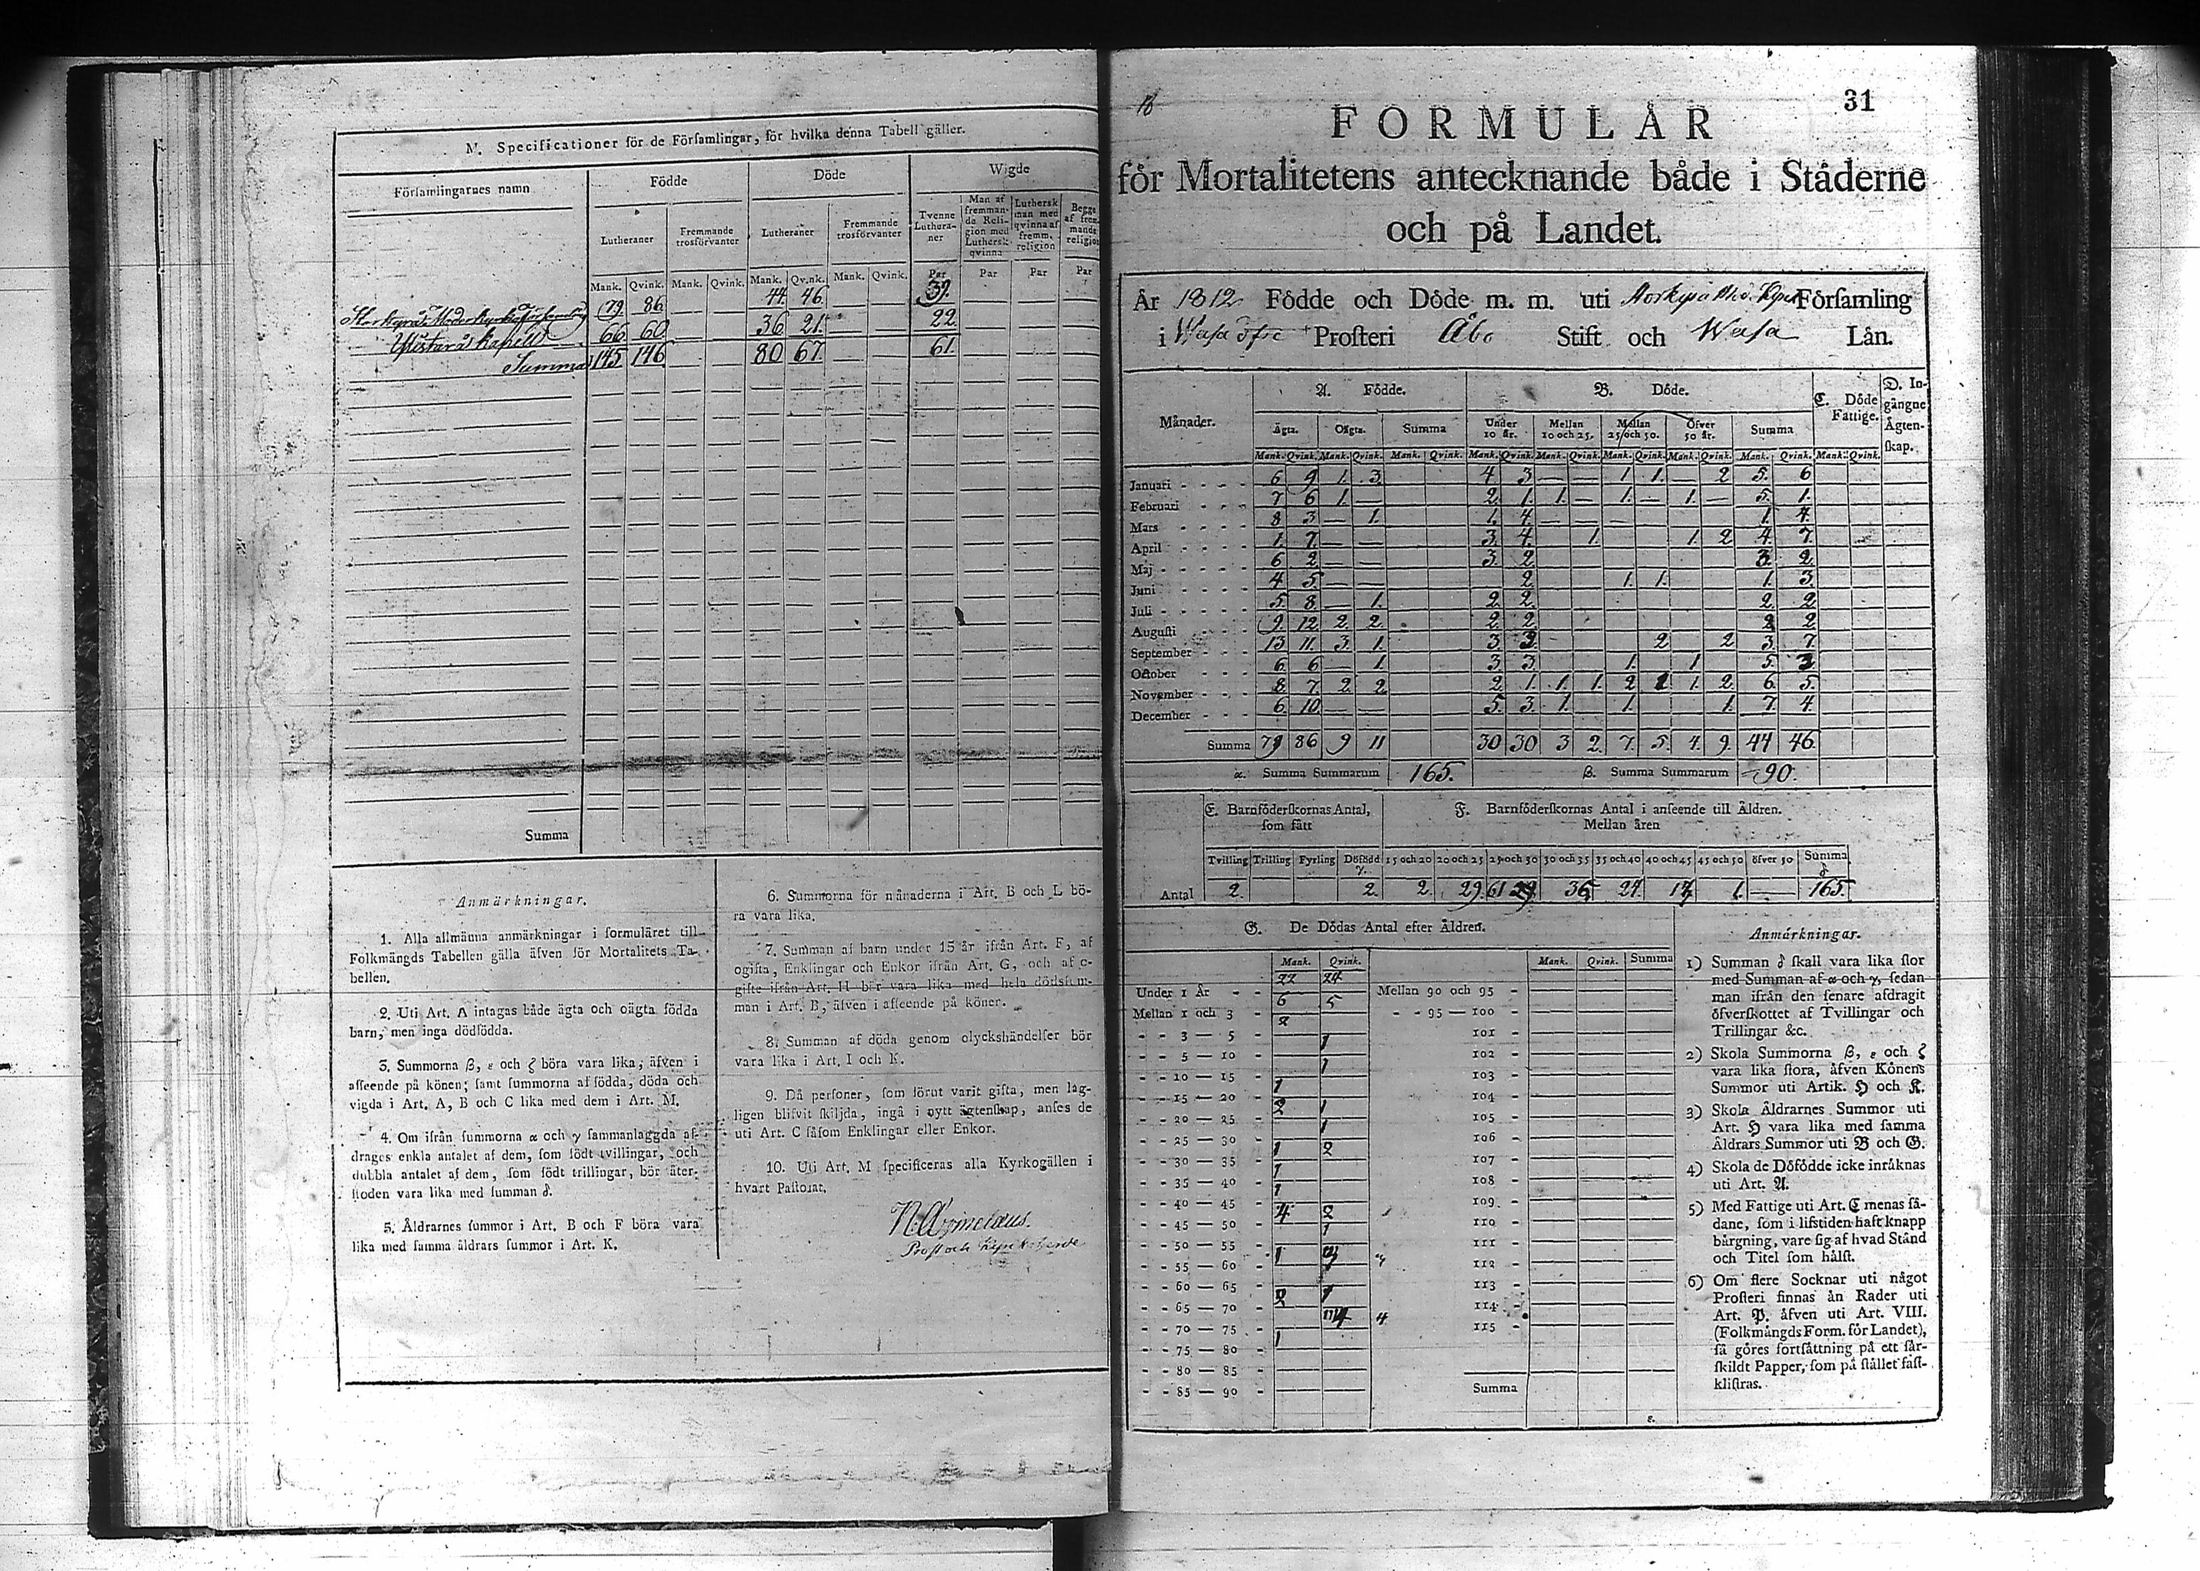 M. Specificationer för de Församlingar, för hvilka denna Tabell gäller.
Församlingarnes namn Födde Döde Wigde
Lutheraner Fremmande trosförvanter Lutheraner Fremmande trosförvanter Tvenne Lutheraner Man af fremmande Religion med Luthersk qvinna Luthersk man med qvinna af fremm. religion Begge af fremmande religion
Mank. Qvink. Mank. Qvink. Mank. Qvink. Mank. Qvink. Par Par Par Par
Storkyrå Moderkyrko Församling 79. 86. 44. 46. 39.
Ylistaro Kapell 66. 60. 36. 21. 22.
Summa 145 146 80 67. 61.
Summa
Anmärkningar.
1. Alla allmänna anmärkningar i formuläret till
Folkmängds Tabellen gälla äfven för Mortalitets Ta-
bellen.
2. Uti Art. A intagas både ägta och oägta födda
barn, men inga dödfödda.
3. Summorna ß, ε och ζ böra vara lika, äfven i
afseende på könen; samt summorna af födda, döda och
vigda i Art. A, B och C lika med dem i Art. M.
4. Om ifrån summorna α och γ sammanlaggda af-
drages enkla antalet af dem, som födt tvillingar, och
dubbla antalet af dem, som födt trillingar, bör åter-
stoden vara lika med summan δ.
5. Åldrarnes summor i Art. B och F böra vara
lika med samma åldrars summor i Art. K.
6. Summorna för månaderna i Art. B och L bö-
ra vara lika.
7. Summan af barn under 15 år ifrån Art. F, af
ogifta, Enklingar och Enkor ifrån Art. G, och af e-
gifte ifrån Art. H bör vara lika med hela dödssum-
man i Art. B, äfven i afseende på köner.
8. Summan af döda genom olyckshändelser bör
vara lika i Art. I och K.
9. Då personer, som förut varit gifta, men lag-
ligen blifvit skiljda, ingå i nytt ägtenskap, anses de
uti Art. C såsom Enklingar eller Enkor.
10. Uti Art. M specificeras alla Kyrkogällen i
hvart Pastorat.
Prost och Kyrkoherde
31
FORMULÅR
för Mortalitetens antecknande både i Ståderne
och på Landet.
År 1812 Födde och Döde m. m. uti Församling
i Wasa öfre Prosteri Åbo Stift och Wasa Län.
Månader. A. Födde. B. Döde. C. Döde Fattige. D. Ingångne Ägtenskap.
Ägta. Oägta. Summa Under 10 år. Mellan 10 och 25. Mellan 25 och 50. Öfver 50 år. Summa
Mank. Qvink. Mank. Qvink. Mank. Qvink. Mank. Qvink. Mank. Qvink. Mank. Qvink. Mank. Qvink. Mank. Qvink. Mank. Qvink.
Januari 6 9 1. 3. 4 3 — — 1 1. — 2 5. 6
Februari 7 6 1. — 2 1. 1. — 1. — 1. — 5. 1.
Mars 8 3 — 1. 1. 4. — — — 1. 4.
April 1 7. — — 3. 4. 1. 1. 2 4. 7.
Maj 6 2. — — 3. 2 3. 2.
Juni 4 5. — — 2. 1. 1. 1. 3.
Juli 5. 8. — 1. 2. 2. 2. 2
Augusti 9. 12 2. 2. 2. 2. 2 2
September 13 11. 3. 1. 3 3. 2 2 3. 7.
October 6. 6 — 1. 3 3. 1. 1 5. 3
November 8. 7. 2. 2. 2. 1. 1. 1. 2 1. 1. 2. 6. 5.
December 6. 10. — — 5. 3. 1. 1. 1. 7. 4.
Summa 79 86 9 11 30 30 3 2. 7. 5. 4. 9. 44 46.
α. Summa Summarum 165. ß. Summa Summarum 90.
E. Barnföderskornas Antal, som fått F. Barnföderskornas Antal i anseende till Åldren.
Mellan åren
Tvilling Trilling Fyrling Döfödd γ. 15 och 20 20 och 25 25 och 30 30 och 35 35 och 40 40 och 45 45 och 50 öfver 50 Summa δ
Antal 2. 2. 2. 29. 61 1. — 165.
G. De Dödas Antal efter Åldren.
Mank. Qvink. Mank. Qvink. Summa
Under 1 År 22 24 Mellan 90 och 95
Mellan 1 och 3 6 5 95 — 100
3 — 5 2 101
5 — 10 1 102
10 — 15 1 103
15 — 20 1 104
20 — 25 2 1 105
25 — 30 1 106
30 — 35 1 2 107
35 — 40 1 108
40 — 45 1 109
45 — 50 4 2 110
50 — 55 1 111
55 — 60 1 112
60 — 65 113
65 — 70 2 1 114
70 — 75 4 115
75 — 80 1
80 — 85 Summa
85 — 90
ε.
Anmärkningar.
1) Summan δ skall vara lika stor
med Summan af α och γ, sedan
man ifrån den senare afdragit
öfverskottet af Tvillingar och
Trillingar &c.
2) Skola Summorna ß, ε och ζ
vara lika stora, åfven Könens
Summor uti Artik. H och K.
3) Skola Åldrarnes Summor uti
Art. H vara lika med samma
Åldrars Summor uti B och G.
4) Skola de Döfödde icke inråknas
uti Art. A.
5) Med Fattige uti Art. C menas så-
dane, som i lifstiden haft knapp
bårgning, vare sig af hvad Stånd
och Titel som hålst.
6) Om flere Socknar uti något
Prosteri finnas ån Rader uti
Art. P. åfven uti Art. VIII.
(Folkmångds Form. för Landet),
så göres fortsåttning på ett sår-
skildt Papper, som på stållet fast-
klistras.